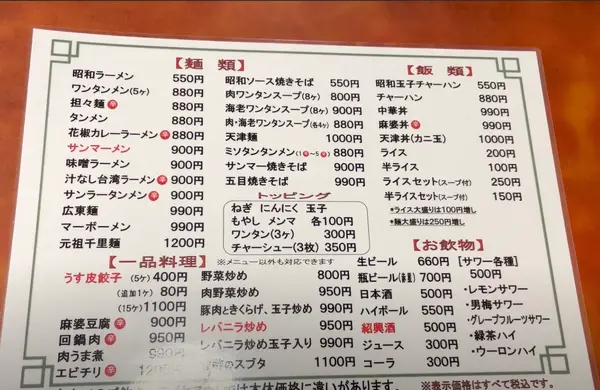 【麺 類】
昭和ラーメン 550円
ワンタンメン(5ヶ) 880円
担々麺 辛 880円
タンメン 880円
花椒カレーラーメン 辛 880円
サンマーメン 900円
味噌ラーメン 900円
汁なし台湾ラーメン 辛 900円
サンラータンメン 辛 900円
広東麺 990円
マーボーメン 990円
元祖千里麺 1200円
昭和ソース焼きそば 550円
肉ワンタンスープ(8ヶ) 800円
海老ワンタンスープ(8ヶ) 900円
肉・海老ワンタンスープ(各4ヶ) 880円
天津麺 1000円
ミソタンタンメン(1辛~5辛) 880円
サンマー焼きそば 900円
五目焼きそば 990円
トッピング
ねぎ にんにく 玉子
もやし メンマ 各100円
ワンタン(3ヶ) 300円
チャーシュー(3枚) 350円
【飯 類】
昭和玉子チャーハン 550円
チャーハン 880円
中華丼 990円
麻婆丼 辛 990円
天津丼(カニ玉) 1000円
ライス 200円
半ライス 100円
ライスセット(スープ付) 250円
半ライスセット(スープ付) 150円
*ライス大盛りは100円増し
*麺大盛りは250円増し
【一品料理】
※メニュー以外も対応できます
うす皮餃子 (5ヶ) 400円
(追加1ヶ) 80円
(15ヶ) 1100円
麻婆豆腐 辛 900円
回鍋肉 辛 950円
肉うま煮 990円
エビチリ 辛
野菜炒め 800円
肉野菜炒め 950円
豚肉ときくらげ、玉子炒め 990円
レバニラ炒め 950円
レバニラ炒め玉子入り 990円
スブタ 1100円
【お飲物】
生ビール 660円
瓶ビール 700円
日本酒 500円
ハイボール 550円
紹興酒 500円
ジュース 300円
コーラ 300円
[サワー各種]
500円
・レモンサワー
・男梅サワー
・グレープフルーツサワー
・緑茶ハイ
・ウーロンハイ
※表示価格はすべて税込です。
本体価格に違いがあります。